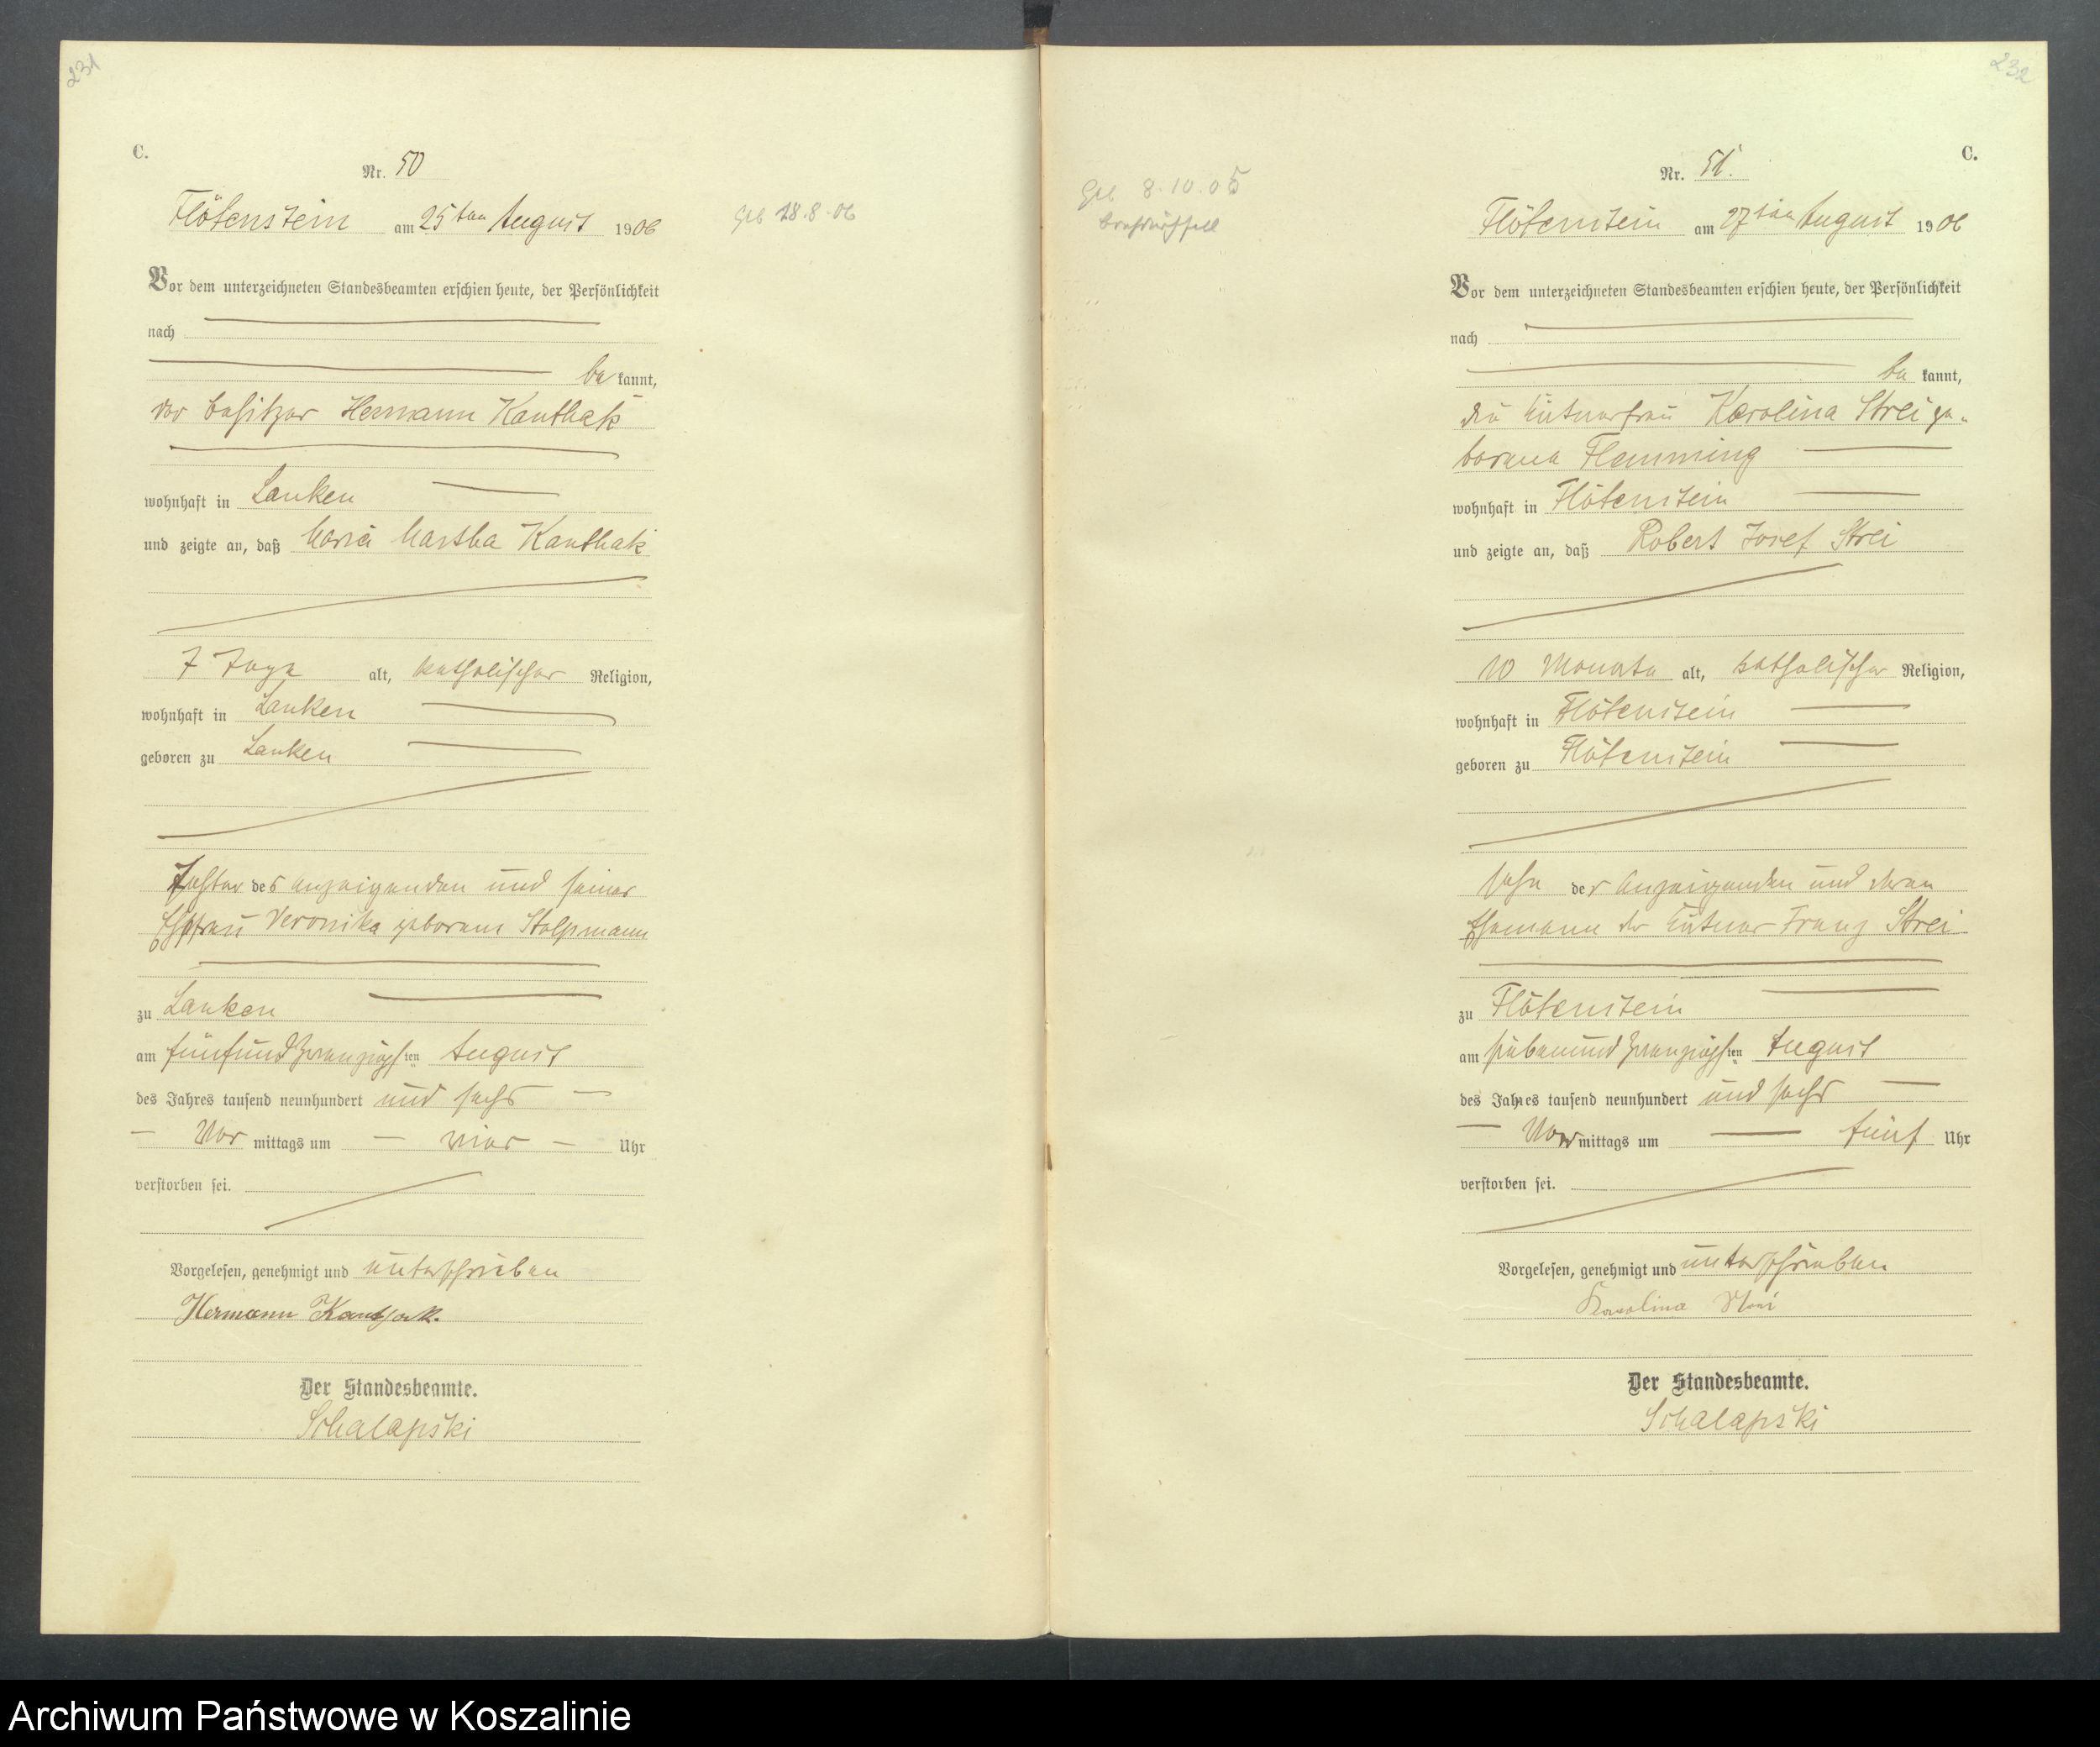 231
C.
Nr. 50
Flötenstein am 25ten August 1906
Geb 18.8.06
Vor dem unterzeichneten Standesbeamten erschien heute, der Persönlichkeit
nach
be kannt,
der Besitzer Hermann Kanthak
wohnhaft in Lanken
und zeigte an, daß Maria Martha Kanthak
7 Tage alt, katholischer Religion,
wohnhaft in Lanken
geboren zu Lanken
Tochter des Anzeigenden und seiner
Ehefrau Veronika geborene Stolpmann
zu Lanken
am fünfundzwanzigsten August
des Jahres tausend neunhundert und sechs
Vor mittags um vier Uhr
verstorben sei.
Vorgelesen, genehmigt und unterschrieben
Hermann Kanthak.
Der Standesbeamte.
Schalapski
232
C.
Nr. 51.
Geb 8.10.05
Brechdurchfall
Flötenstein am 27ten August 1906
Vor dem unterzeichneten Standesbeamten erschien heute, der Persönlichkeit
nach
be kannt,
die Kätnerfrau Karolina Strei ge-
borene Flemming
wohnhaft in Flötenstein
und zeigte an, daß Robert Josef Strei
10 Monate alt, katholischer Religion,
wohnhaft in Flötenstein
geboren zu Flötenstein
Sohn der Anzeigenden und deren
Ehemann der Kätner Franz Strei
zu Flötenstein
am siebenundzwanzigsten August
des Jahres tausend neunhundert und sechs
Vor mittags um fünf Uhr
verstorben sei.
Vorgelesen, genehmigt und unterschrieben
Karolina Strei
Der Standesbeamte.
Schalapski
Archiwum Państwowe w Koszalinie